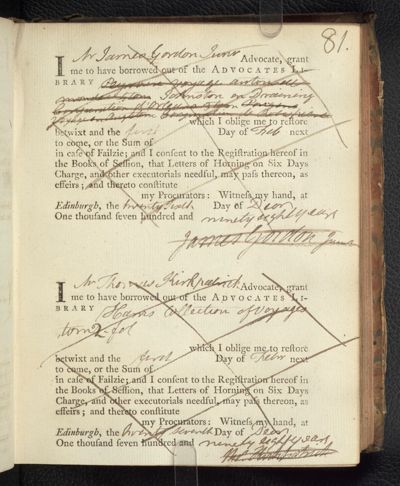 81.
I Mr James Gordon Junr Advocate, grant
me to have borrowed out of the ADVOCATES LI-
BRARY voyage
Johnston on Draining

which I oblige me to reſtore
betwixt and the first Day of Feb next
to come, or the Sum of
in caſe of Failzie; and I conſent to the Regiſtration hereof in
the Books of Seſſion, that Letters of Horning on Six Days
Charge, and other executorials needful, may paſs thereon, as
effeirs; and thereto conſtitute
my Procurators: Witneſs my hand, at
Edinburgh, the twenty sixth Day of Decr
One thouſand ſeven hundred and ninety eight years
James Gordon Junr
I Mr Thomas Kirkpatrick Advocate, grant
me to have borrowed out of the ADVOCATES LI-
BRARY Harris Collection of Voyages
tom 2 fol
which I oblige me to reſtore
betwixt and the first Day of Febr next
to come, or the Sum of
in caſe of Failzie; and I conſent to the Regiſtration hereof in
the Books of Seſſion, that Letters of Horning on Six Days
Charge, and other executorials needful, may paſs thereon, as
effeirs; and thereto conſtitute
my Procurators: Witneſs my hand, at
Edinburgh, the twenty seventh Day of Decr
One thouſand ſeven hundred and ninety eight years
Thos Kirkpatrick